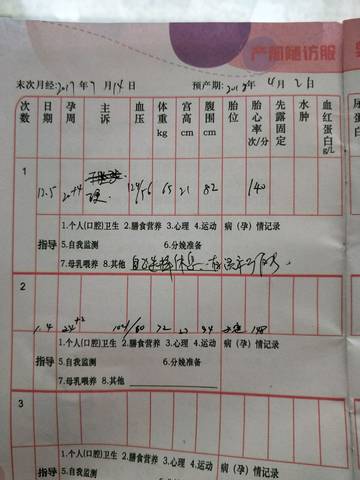 产前随访服
末次月经:2017年7月14日 预产期:2018年4月21日
次数 日期 孕周 主诉 血压 体重kg 宫高cm 腹围cm 胎位 胎心率次/分 先露固定 水肿 血红蛋白g/L
1
12.5 20+4 124/56 65 21 82 140
1.个人(口腔)卫生 2.膳食营养 3.心理 4.运动 病(孕)情记录
指导 5.自我监测 6.分娩准备
7.母乳喂养 8.其他
2
1.4 24+2 104/60 72 94 148
1.个人(口腔)卫生 2.膳食营养 3.心理 4.运动 病(孕)情记录
指导 5.自我监测 6.分娩准备
7.母乳喂养 8.其他
3
1.个人(口腔)卫生 2.膳食营养 3.心理 4.运动 病(孕)情记录
指导 5.自我监测 6.分娩准备